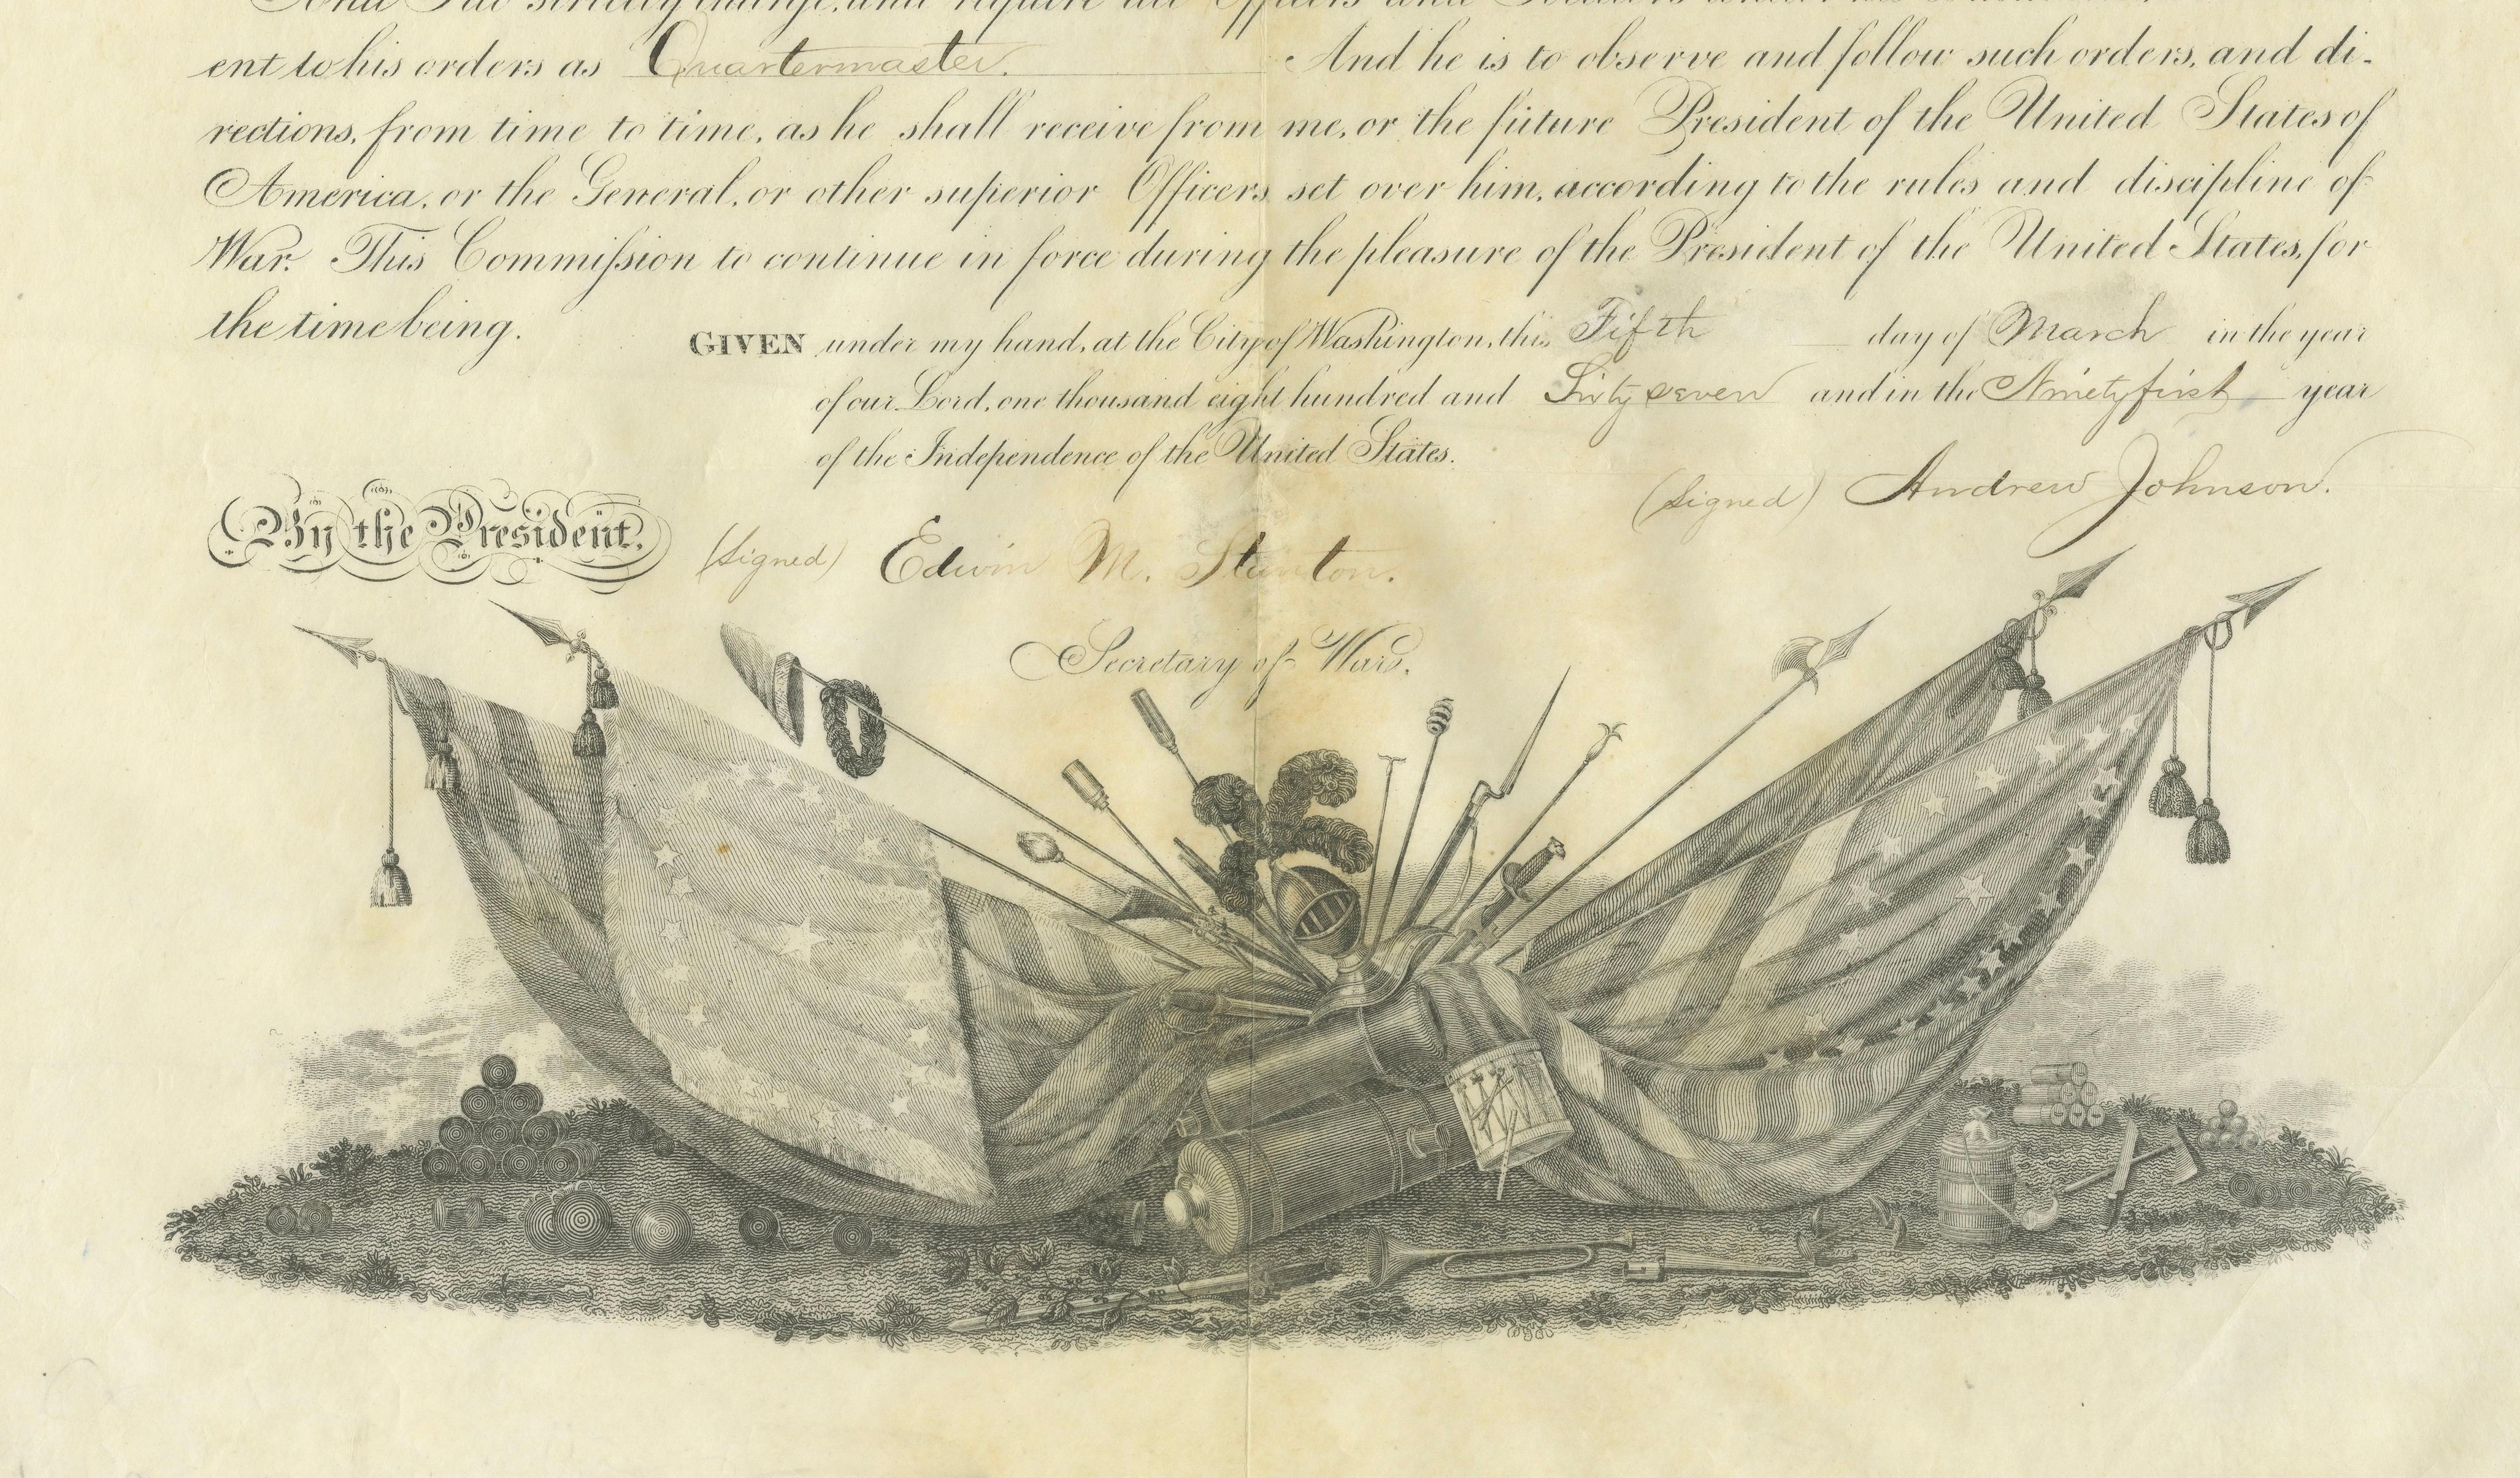 And I do strictly charge, and require all Officers and Soldiers under his command
ent to his orders as Quartermaster. And he is to observe and follow such orders, and di-
rections, from time to time, as he shall receive from me, or the future President of the United States of
America, or the General, or other superior Officers set over him, according to the rules and discipline of
War. This Commission to continue in force during the pleasure of the President of the United States, for
the time being.
GIVEN under my hand, at the City of Washington, this Fifth day of March in the year
of our Lord, one thousand eight hundred and Sixty seven and in the Ninety first year
of the Independence of the United States.
(Signed) Andrew Johnson.
By the President.
(Signed) Edwin M. Stanton.
Secretary of War.